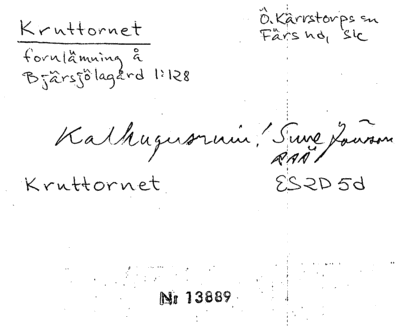 Kruttornet
fornlämning å
Bjärsjölagård 1:128
Ö. Kärrstorps sn
Färs hd, Sk
Kalkugnsruin! Sune Jönsson
RAÄ
Kruttornet ES2D5d
Nr 13889